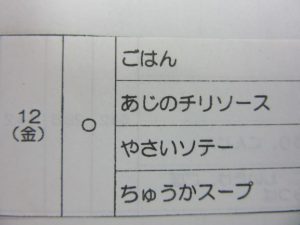 12
(金)
○
ごはん
あじのチリソース
やさいソテー
ちゅうかスープ